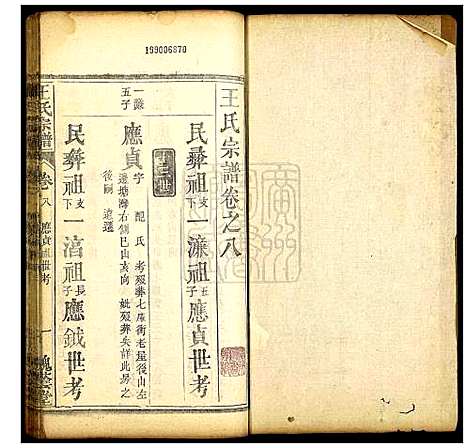 199006870
王氏宗譜卷之八
民彝祖支下一濂祖五子應貞世考
十三世
一濂五子
應貞 字 配 氏 考歿葬七庫衖老屋後山左
邊塘灣右側巳山亥向 妣歿葬矣詳此房之
後嗣 遠遷
民彝祖支下一涺祖長子應鉞世考
王氏宗譜 卷八 應貞 世考 一 槐蔭堂